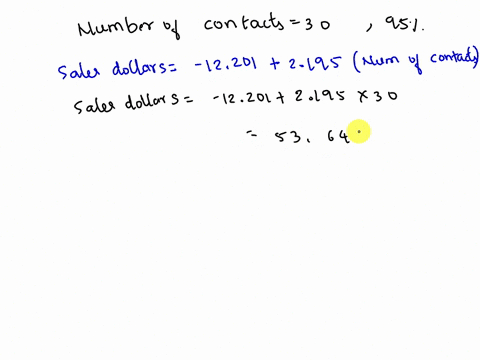 Number of contacts = 30 , 95%.
Sales dollars = -12.201 + 2.195 (Num of contacts)
Sales dollars = -12.201 + 2.195 × 30
= 53.64